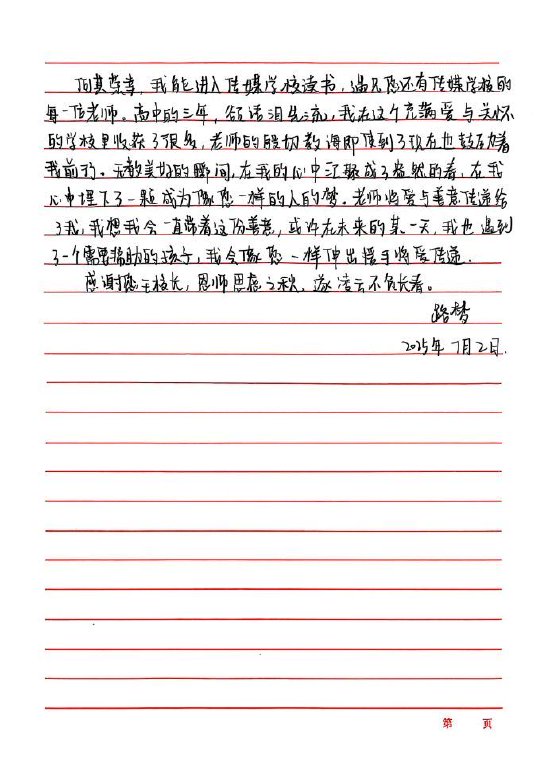 何其荣幸，我能进入传媒学校读书，遇见您还有传媒学校的
每一位老师。高中的三年，欲语泪先流，我在这个充满爱与关怀
的学校里收获了很多，老师的殷切教诲即使到了现在也鼓励着
我前行。无数美好的瞬间，在我的心中汇聚成了盎然的春，在我
心中埋下了一颗成为像您一样的人的梦。老师将爱与善意传递给
了我，我想我会一直带着这份善意，或许在未来的某一天，我也遇到
了一个需要帮助的孩子，我会像您一样伸出援手将爱传递．
感谢您王校长，恩师思慈之秋，凌云不负长春。
路梦
2025年7月2日．
第 页